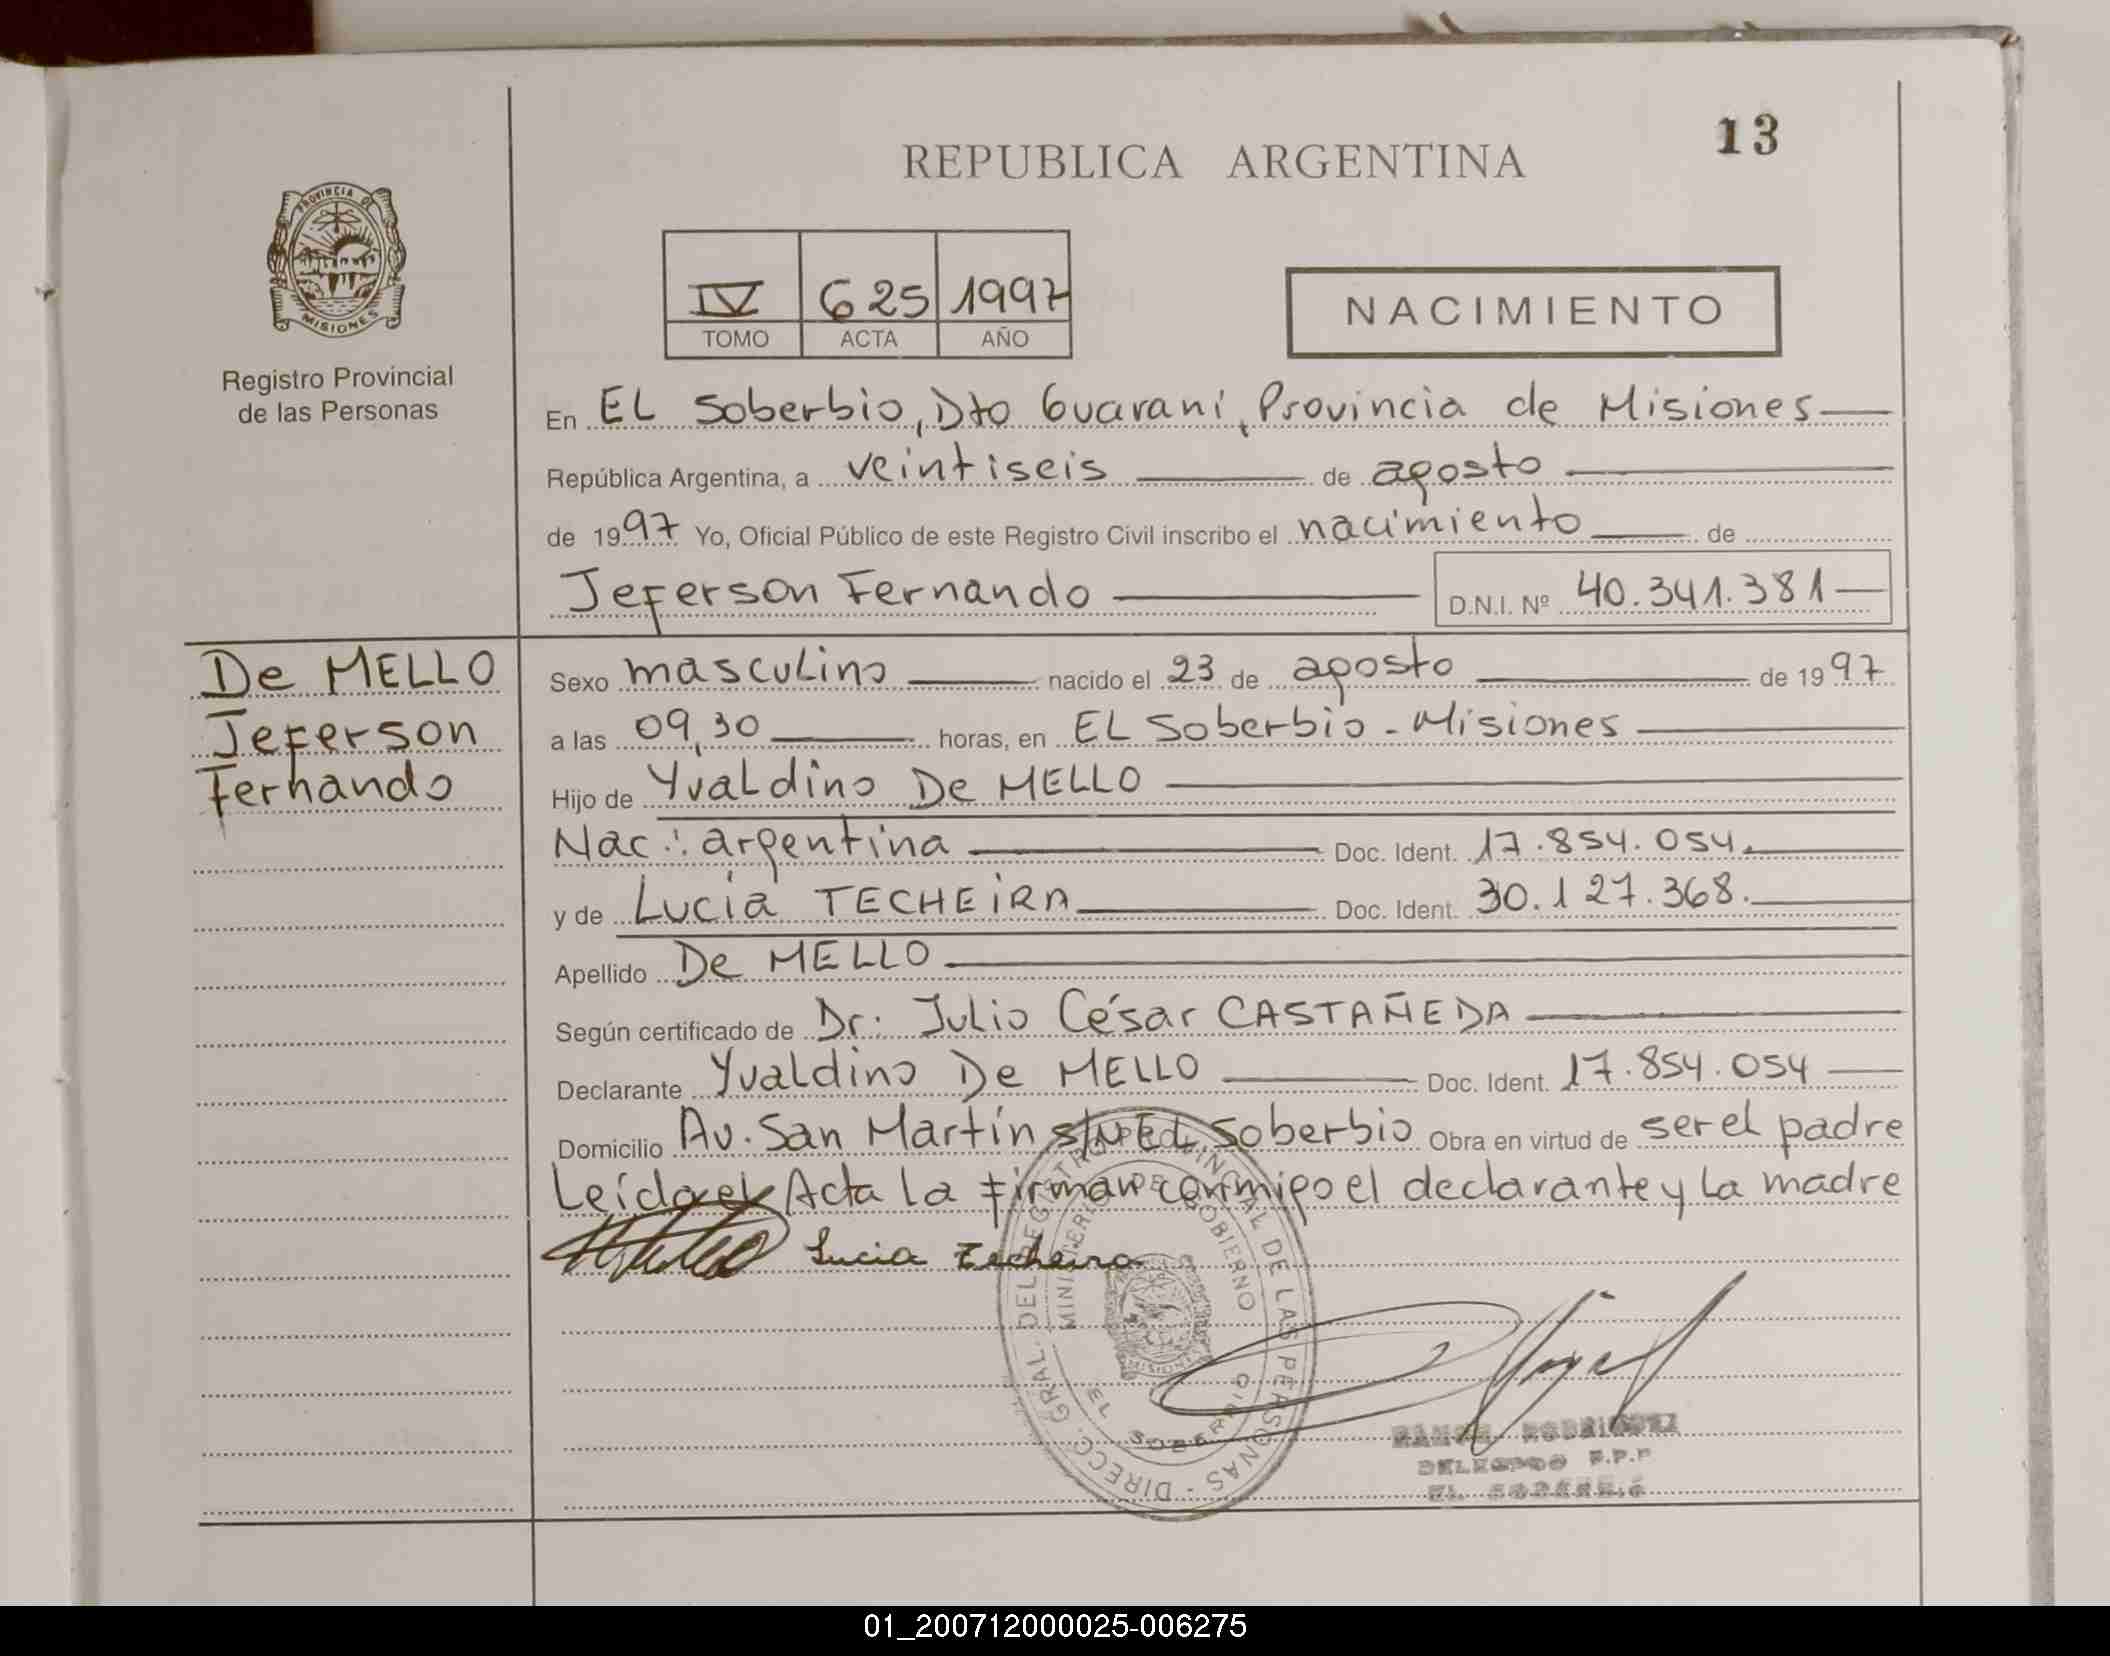 13
REPUBLICA ARGENTINA
PROVINCIA DE
MISIONES
Registro Provincial
de las Personas
IV 625 1997
TOMO ACTA AÑO
NACIMIENTO
En EL Soberbio, Dto Guaraní, Provincia de Misiones
República Argentina, a veintiseis de agosto
de 1997 Yo, Oficial Público de este Registro Civil inscribo el nacimiento de
Jeferson Fernando D.N.I. Nº 40.341.381
De MELLO
Jeferson
Fernando
Sexo masculino nacido el 23 de agosto de 1997
a las 09,30 horas, en EL Soberbio - Misiones
Hijo de Yvaldino De MELLO
Nac.: argentina Doc. Ident. 17.854.054.
y de Lucía TECHEiRA Doc. Ident. 30.127.368.
Apellido De MELLO
Según certificado de Dr: Julio César CASTAÑEDA
Declarante Yvaldino De MELLO Doc. Ident. 17.854.054
Domicilio Av. San Martín s/N EL Soberbio Obra en virtud de ser el padre
Leída el Acta La firman conmigo el declarante y La madre
Lucia Techeira
DIRECC. GRAL. DEL REGISTRO PROVINCIAL DE LAS PERSONAS -
MINISTERIO DE GOBIERNO
MISIONES
EL SOBERBIO
RAMON RODRIGUEZ
DELEGADO R.P.P
EL SOBERBIO
01_200712000025-006275